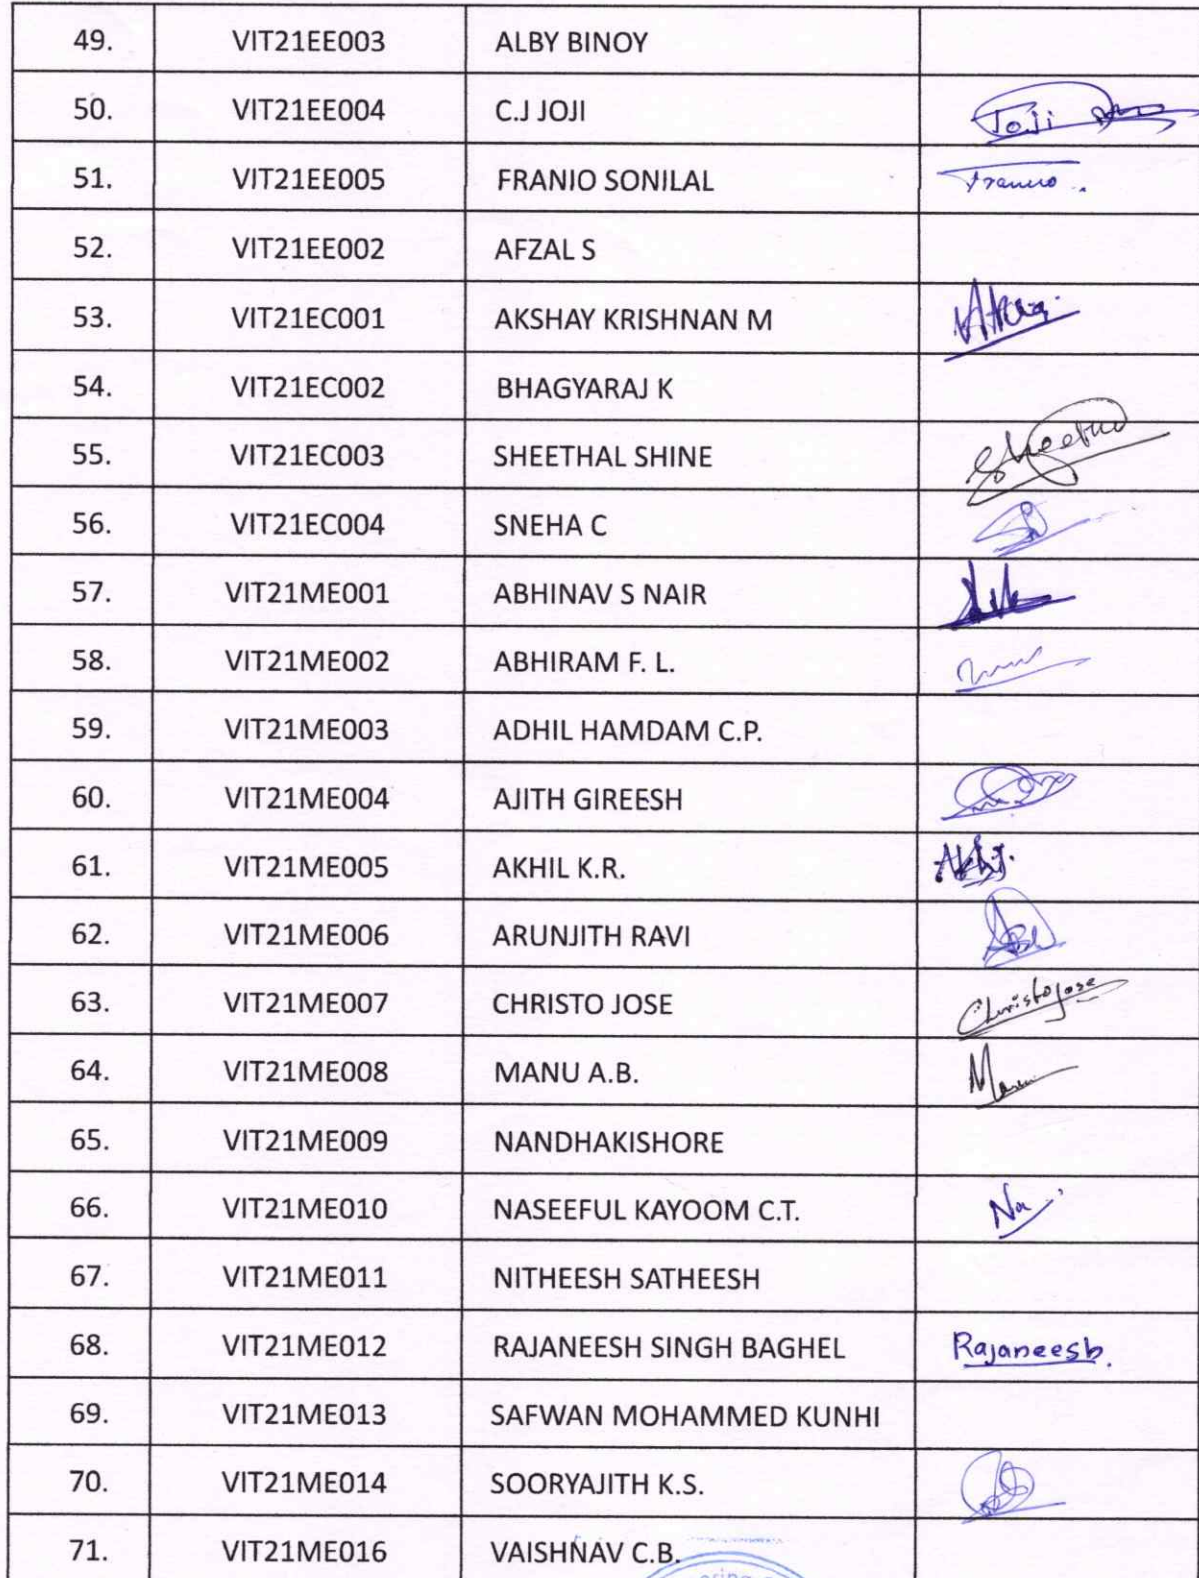 49. VIT21EE003 ALBY BINOY
50. VIT21EE004 C.J JOJI Joji
51. VIT21EE005 FRANIO SONILAL
52. VIT21EE002 AFZAL S
53. VIT21EC001 AKSHAY KRISHNAN M
54. VIT21EC002 BHAGYARAJ K
55. VIT21EC003 SHEETHAL SHINE
56. VIT21EC004 SNEHA C
57. VIT21ME001 ABHINAV S NAIR
58. VIT21ME002 ABHIRAM F. L.
59. VIT21ME003 ADHIL HAMDAM C.P.
60. VIT21ME004 AJITH GIREESH
61. VIT21ME005 AKHIL K.R.
62. VIT21ME006 ARUNJITH RAVI
63. VIT21ME007 CHRISTO JOSE Christo Jose
64. VIT21ME008 MANU A.B.
65. VIT21ME009 NANDHAKISHORE
66. VIT21ME010 NASEEFUL KAYOOM C.T. Na
67. VIT21ME011 NITHEESH SATHEESH
68. VIT21ME012 RAJANEESH SINGH BAGHEL Rajaneesh.
69. VIT21ME013 SAFWAN MOHAMMED KUNHI
70. VIT21ME014 SOORYAJITH K.S.
71. VIT21ME016 VAISHNAV C.B.